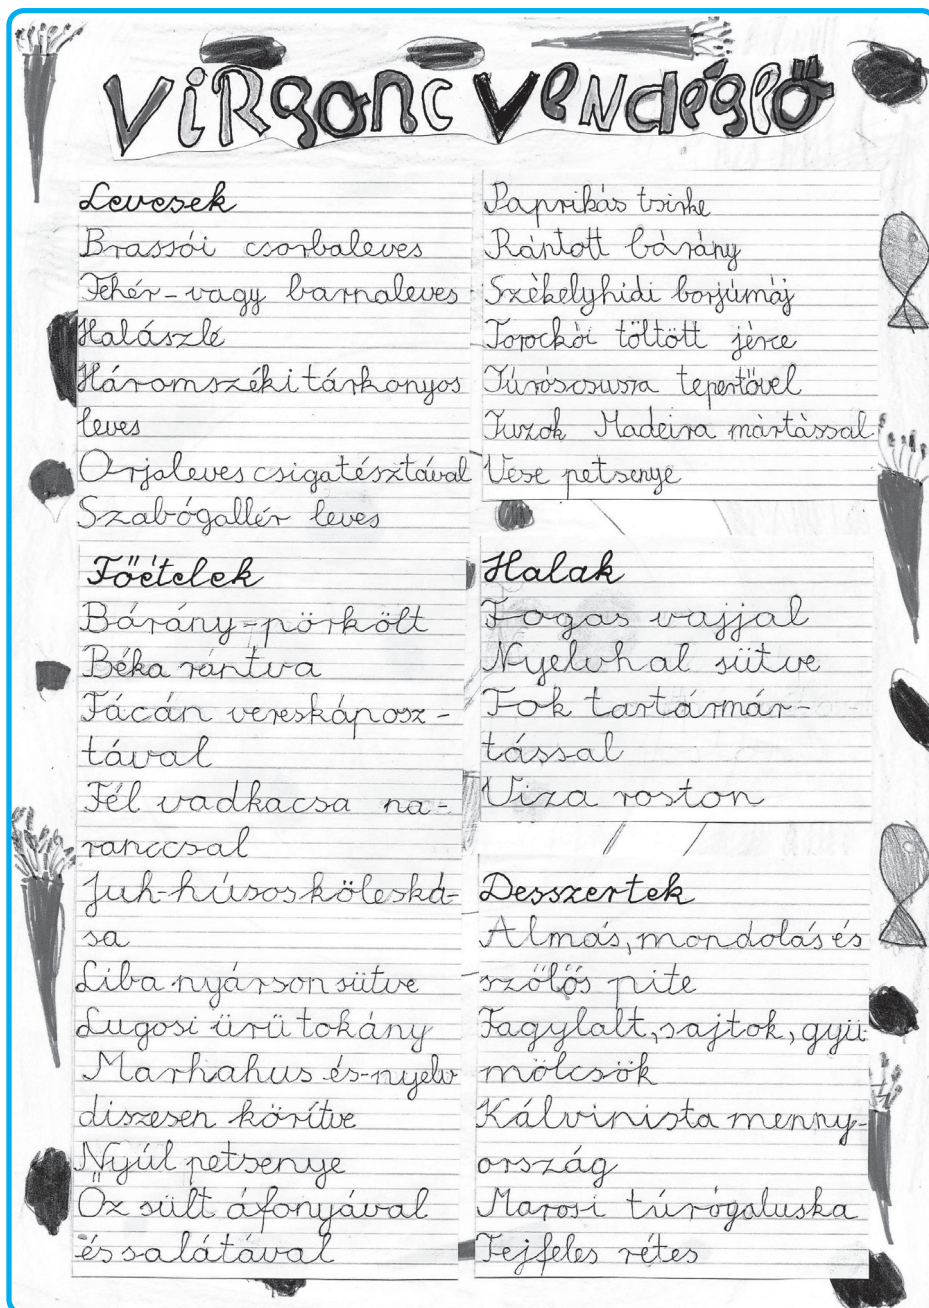 Virgonc Vendéglő
Levesek
Brassói csorbaleves
Fehér-vagy barnaleves
Halászlé
Háromszéki tárkonyos
leves
Orjaleves csigatésztával
Szabógallér leves
Főételek
Bárány-pörkölt
Béka rántva
Fácán vereskáposz-
tával
Fél vadkacsa na-
ranccsal
Juh-húsos köleská-
sa
Liba nyárson sütve
Lugosi ürü tokány
Marhahus és-nyelv
diszesen körítve
Nyúl petsenye
Őz sült áfonyával
és salátával
Paprikás tsirke
Rántott bárány
Székelyhidi borjúmáj
Torockói töltött jérce
Túróscsusza tepertővel
Tuzok Madeira mártással
Vese petsenye
Halak
Fogas vajjal
Nyelvhal sütve
Tok tartármár-
tással
Viza roston
Desszertek
Almás, mondolás és
szőlős pite
Fagylalt, sajtok, gyü
mölcsök
Kálvinista menny-
ország
Marosi túrógaluska
Tejfeles rétes